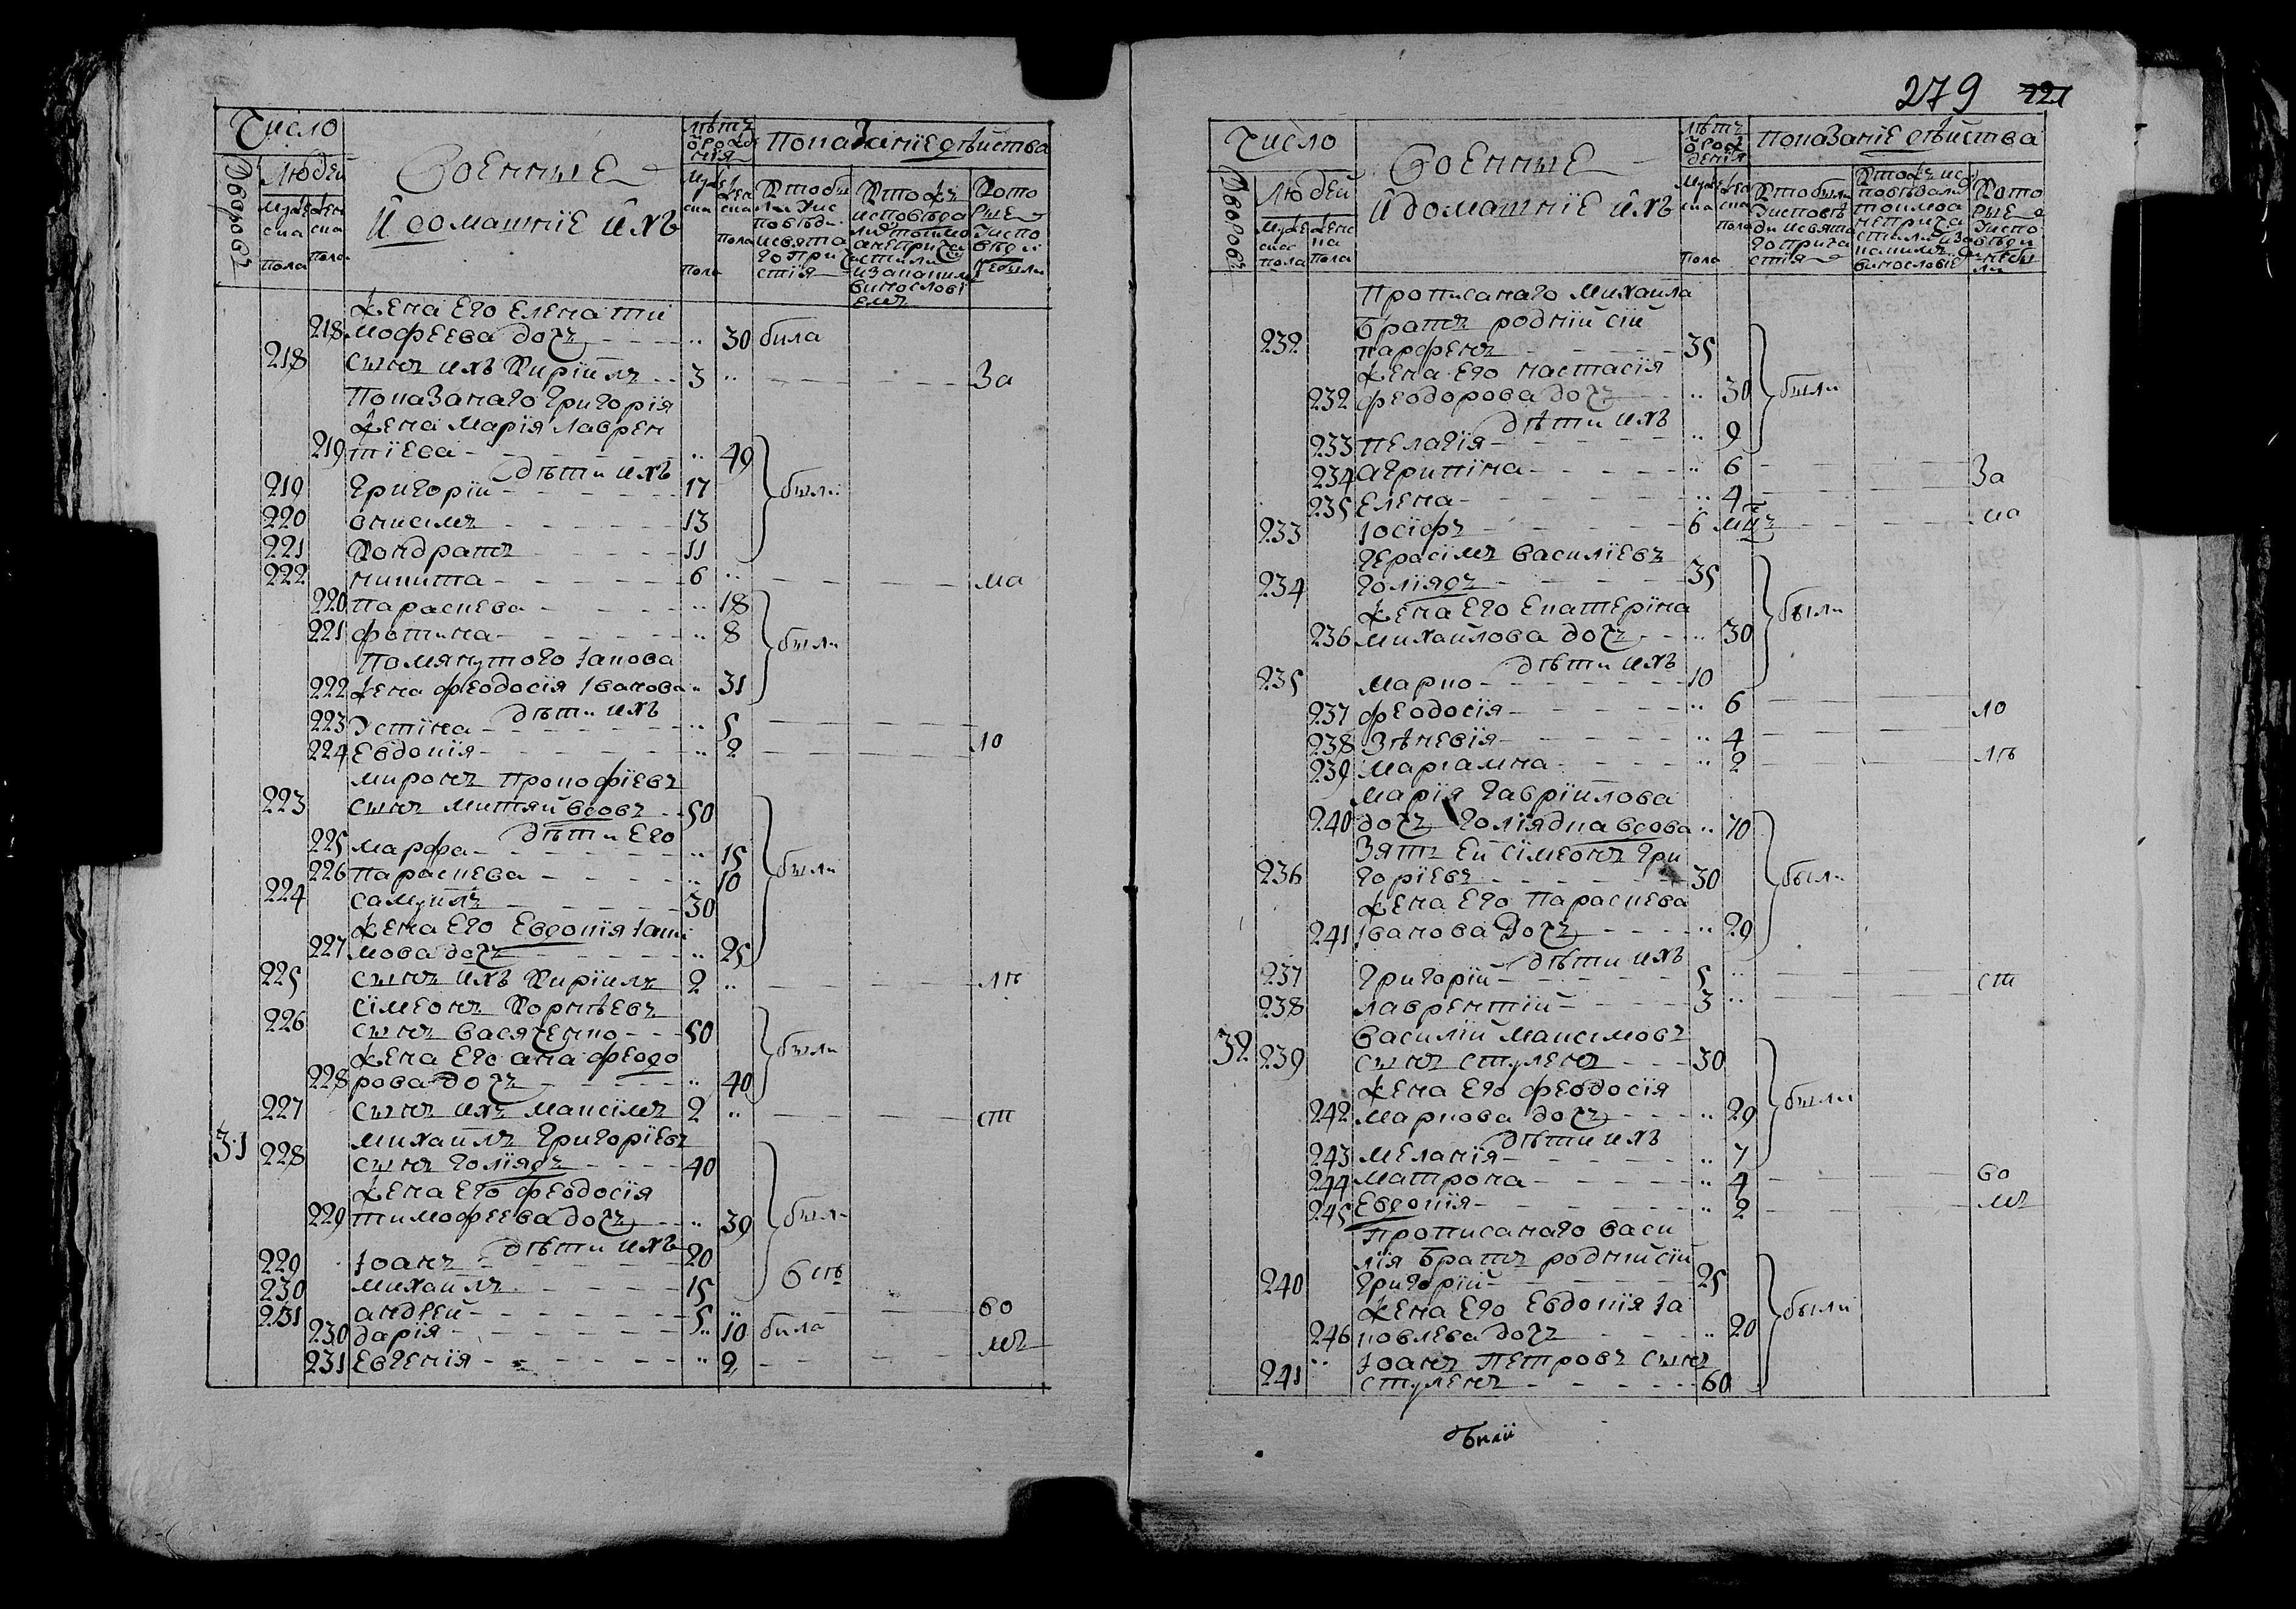 Число
Дворовъ
Людей
Мужеска пола
Женска пола
Военные
И домашніе ихъ
Лѣтъ ѿ рождѣнія
Мужеска пола
Женска пола
Показаніе дѣйства
Кто были у исповѣди и святаго причастія
Кто жъ исповѣдались токмо а не причастились и за какимъ винословіемъ
Которые у исповѣди не были
жена его Елена Ти
218 мофеева дочъ ·· 30 била
218 сынъ ихъ Кирїилъ 3 ·· За
Показанаго Григорія
жена Марія Лаврен
219 тіева ·· 49
дѣти ихъ
219 Григорїи 17 были
220 Онисимъ 13
221 Кондратъ 11
222 Никита 6 ·· ма
220 Параскева ·· 18
221 Фотина ·· 8 были
Помянутого Іакова
222 жена Феодосїя Іванова ·· 31
дѣти ихъ
223 Устїна ·· 5
224 Евдокїя ·· 2 ло
Миронъ Прокофїевъ
223 сынъ Митяй вдовъ 50
дѣти его
225 Марфа ·· 15
226 Параскева ·· 10 были
224 Самуилъ 30
жена его Евдокїя Іаки
227 мова дочъ ·· 25
225 сынъ ихъ Кирїилъ 2 ·· лѣ
Сімеонъ Корнѣевъ
226 сынъ Васяченко 50
жена его Анна Феодо были
228 рова дочъ ·· 40
227 сынъ ихъ Максімъ 2 ·· ст
31 Михаилъ Григорїевъ
228 сынъ Голїядъ 40
жена его Феодосїя
229 Тимофеева дочъ ·· 39 были
дѣти ихъ
229 Іоанъ 20
230 Михаилъ 15
231 Андрей 5 ·· во
230 Дарїя ·· 10 била
231 Евгенїя ·· 2 мъ
279 421
Число
Дворовъ
Людей
Мужеска пола
Женска пола
Военные
И домашніе ихъ
Лѣтъ ѿ рождѣнія
Мужеска пола
Женска пола
Показаніе дѣйства
Кто были у исповѣди и святаго причастія
Кто жъ исповѣдались токмо а не причастились и за какимъ винословіемъ
Которые у исповѣди не были
Прописанаго Михаила
братъ роднїй сїй
232 Парфенъ 35
жена его Настасїя
232 Феодорова дочъ ·· 30 были
дѣти ихъ
233 Пелагїя ·· 9
234 Агрипїна ·· 6 За
235 Елена ·· 4
233 Іосїфъ 6 мцъ ма
Герасімъ Василїевъ
234 Голїядъ 35
жена его Екатерїна
236 Михаилова дочъ ·· 30 были
дѣти ихъ
235 Марко 10
237 Феодосїя ·· 6 ло
238 Зѣневїя ·· 4
239 Маріамна ·· 2 лѣ
Марїя Гаврїилова
240 дочъ Голїядка вдова ·· 70
Зятъ ей Сімеонъ Гри
236 горїевъ 30 были
жена его Параскева
241 Іванова дочъ ·· 29
дѣти ихъ
237 Григорїй 5 ·· ст
238 Лаврентїй 3 ··
32 Василїй Максимовъ
239 сынъ Стуленъ 30
жена его Феодосїя
242 Маркова дочъ ·· 29 были
дѣти ихъ
243 Меланїя ·· 7
244 Матрона ·· 4 во
245 Евдокїя ·· 2 мъ
Прописанаго Васи
лїя братъ роднїй сїй
240 Григорїй 25
жена его Евдокїя Іа
246 ковлева дочъ ·· 20 были
Іоанъ Петровъ сынъ
241 Стуленъ 60